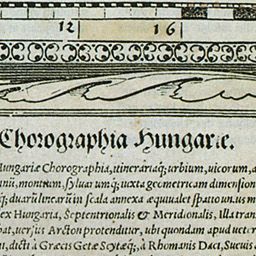 12 16
Chorographia Hungariæ.
Hungariæ Chorographia, itinerariaq́; urbium, uicorum, a
montium, syluarumq́; iuxta geometricam dimension
q́; duarū linearū in scala annexa æquualet spatio unius m
ex Hungaria, Septentrionalis & Meridionalis, Illa tran
uersus Arcton protenditur, ubi quondam apud ueter
dicti à Græcis Getæ Scytæq́;, à Rhomanis Daci, Sueui